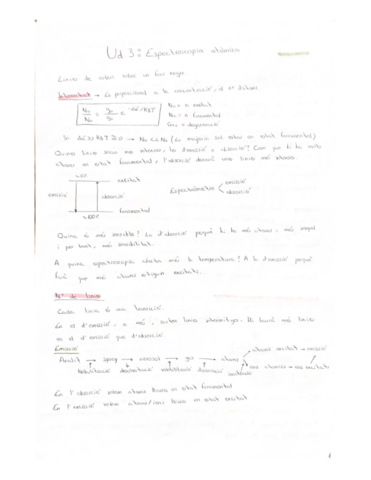 Ud 3: Espectroscopia atòmica
Línies de colors sobre un fons negre.
Intensitat → És proporcional a la concentració, al nº d'àtoms
N* / N0 = g* / g0 e^-ΔE/KBT
N* = n excitat
N0 = n fonamental
G = degeneració
Si ΔE >> KBT → N* << N0 (La majoria estan en estat fonamental)
Quines línies seran més intenses, les d'emissió o absorció? Com que hi ha molts
àtoms en estat fonamental, l'absorció donarà unes línies més intenses.
excitat
emissió
absorció
fonamental
Espectròmetre
emissió
absorció
Quina és més sensible? La d'absorció perquè hi ha més àtoms, més senyal
i per tant, més sensibilitat.
A quina espectroscopia afecta més la temperatura? A la d'emissió perquè
farà que més àtoms estiguin excitats.
Nº de línies
Cada línia és una transició.
En el d'emissió, a més, surten línies
en el d'emissió que d'absorció.
Emissió
Analit → spray → aerosol → gas → àtoms
àtoms excitats → emissió
ions atòmics → ions excitats
nebulització desolvatació volatilització dissociació ionització
En l'absorció volem àtoms lliures en estat fonamental
En l'emissió volem àtoms/ions lliures en estat excitat